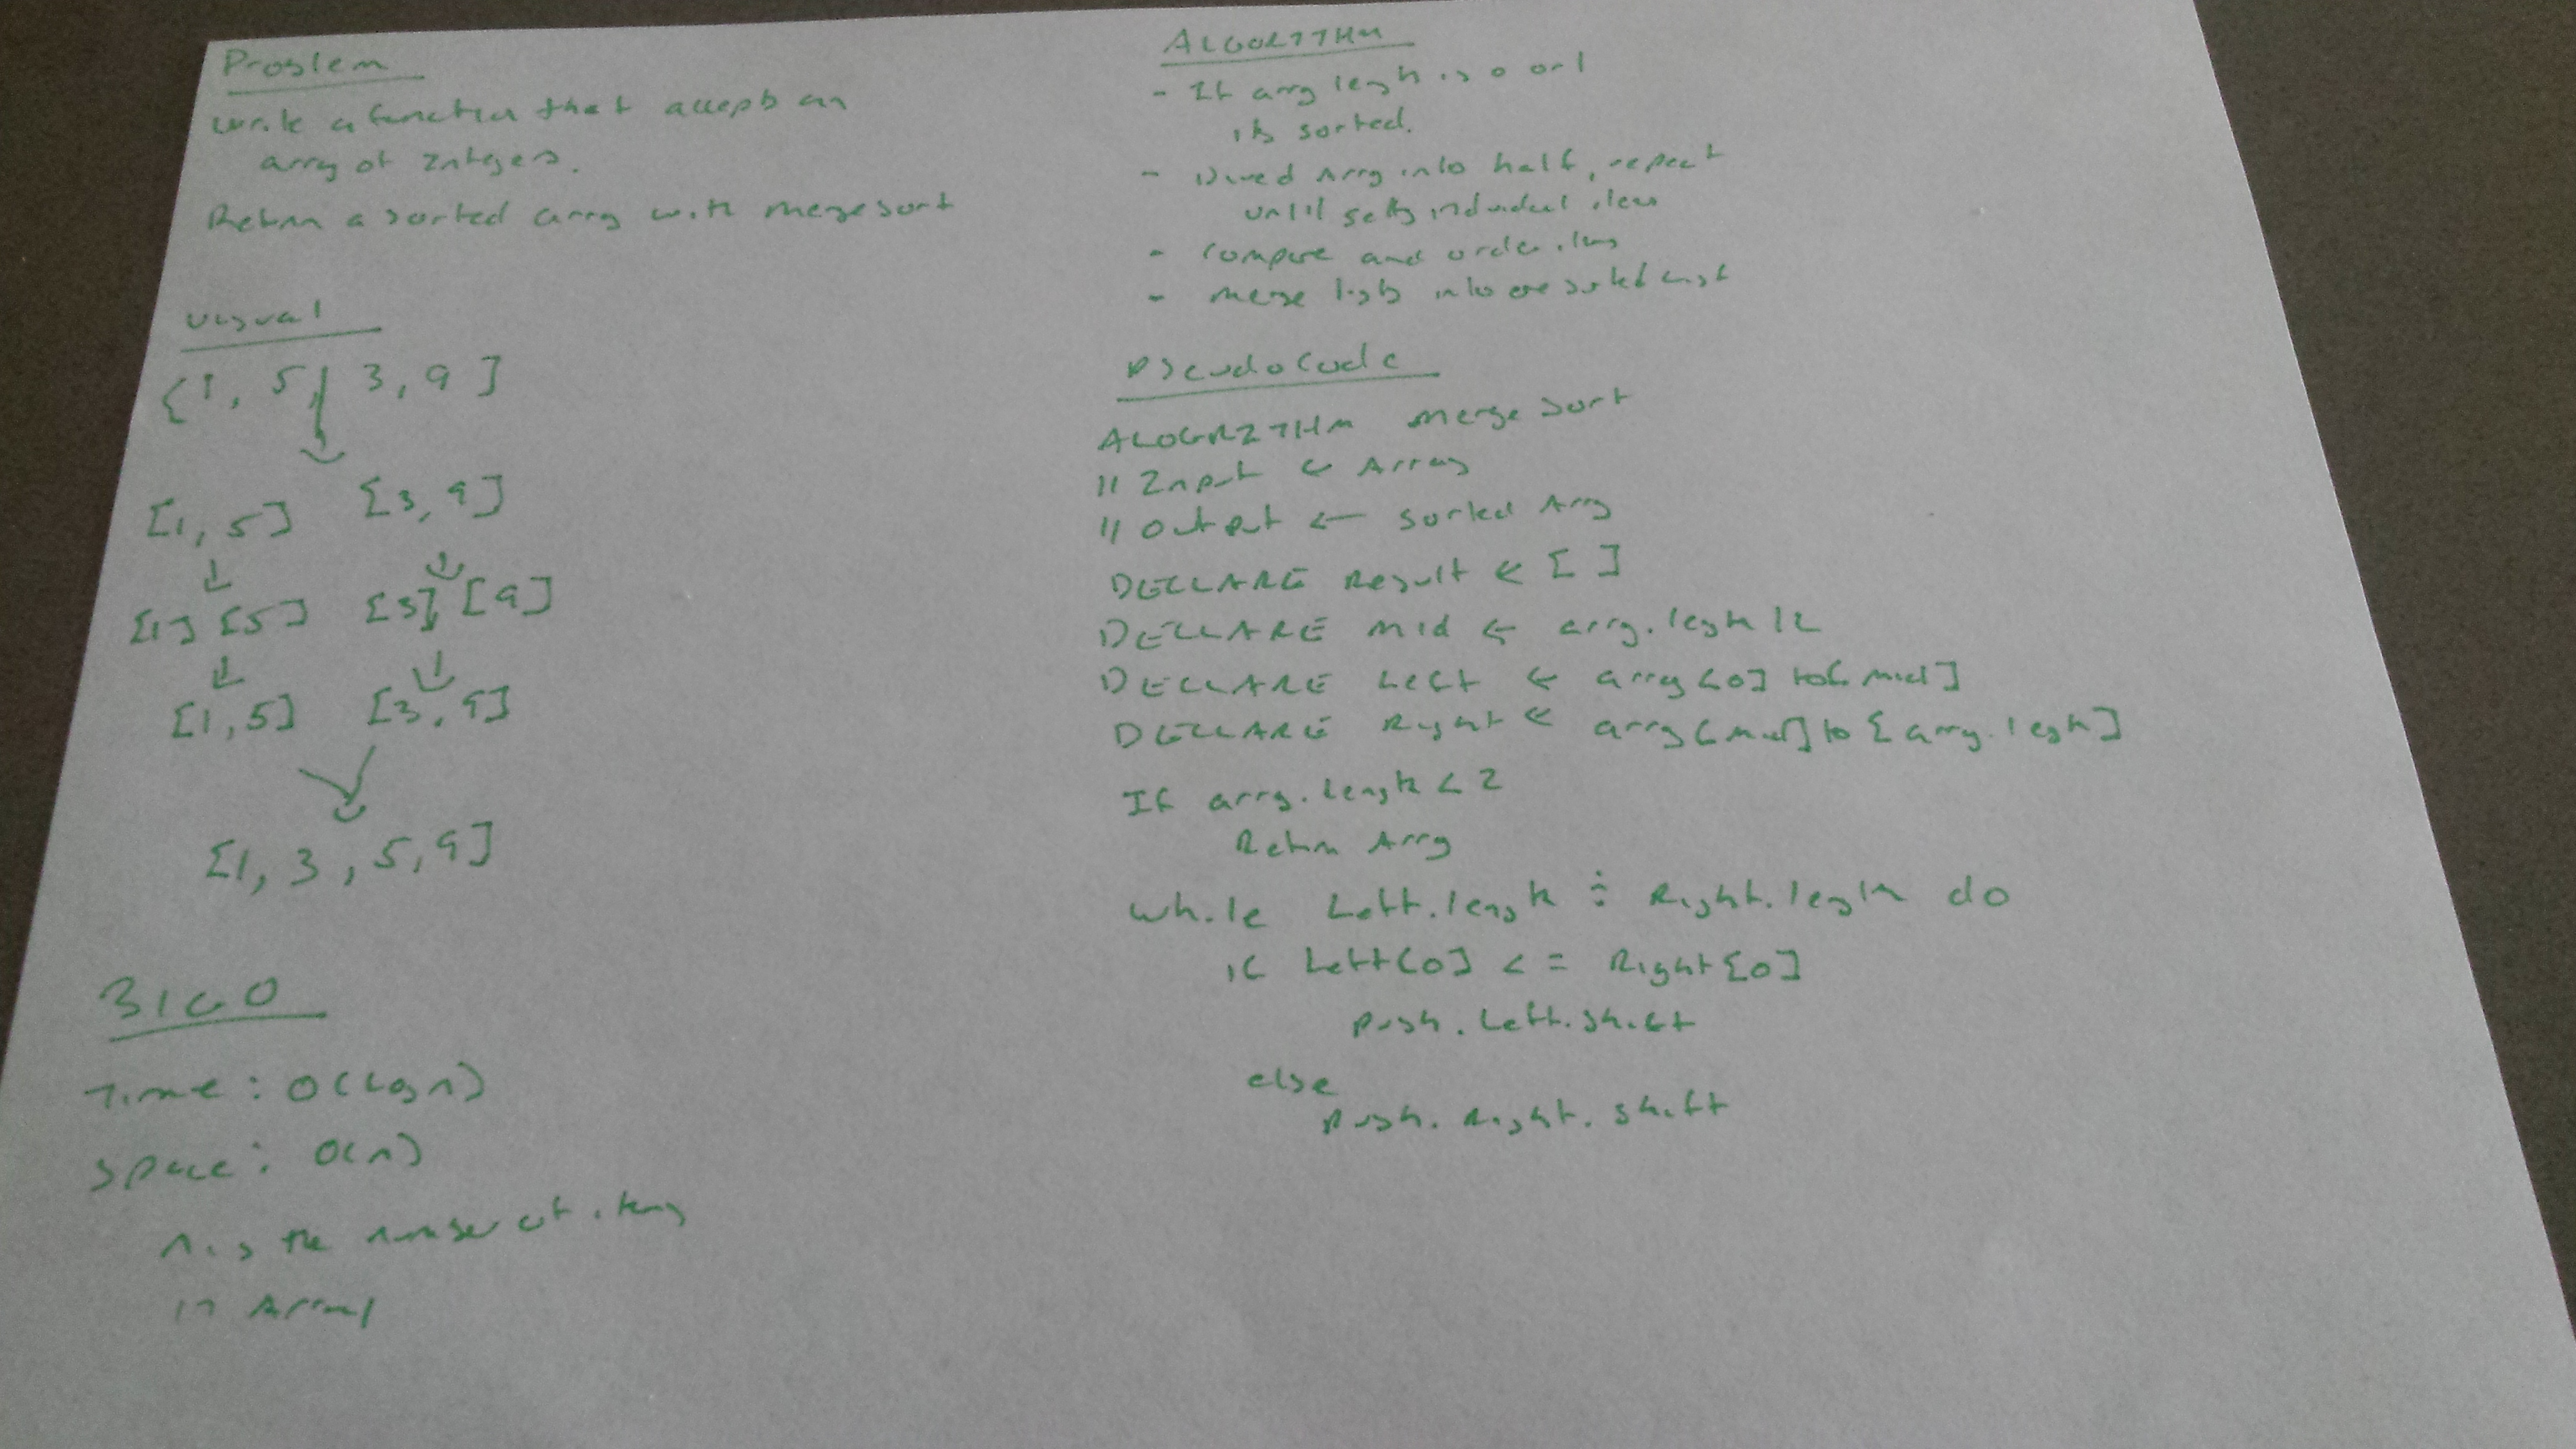 Problem
Write a function that accepts an
array of Integers.
Return a sorted array with merge sort
Visual
[1, 5, 3, 9]
[1, 5] [3, 9]
[1] [5] [3], [9]
[1, 5] [3, 9]
[1, 3, 5, 9]
BIG O
Time: O(Log n)
Space: O(n)
n is the number of items
in Array
ALGORITHM
- If arry legh is 0 or 1
its sorted.
- Dived Arry into half, repeat
until individual
- Compare and order
- Merge lists into one sorted list
PseudoCode
ALOGRITHM Merge Sort
// Input ← Array
// Output ← sorted Arry
DECLARE Result ← [ ]
DECLARE Mid ← arry.legh / 2
DECLARE Left ← arry[0] to [mid]
DECLARE Right ← arry[mid] to [arry.legh]
If arry.Length < 2
Return Arry
While Left.length : Right.legth do
if Left[0] <= Right[0]
Push.Left.shift
else
Push.Right.shift